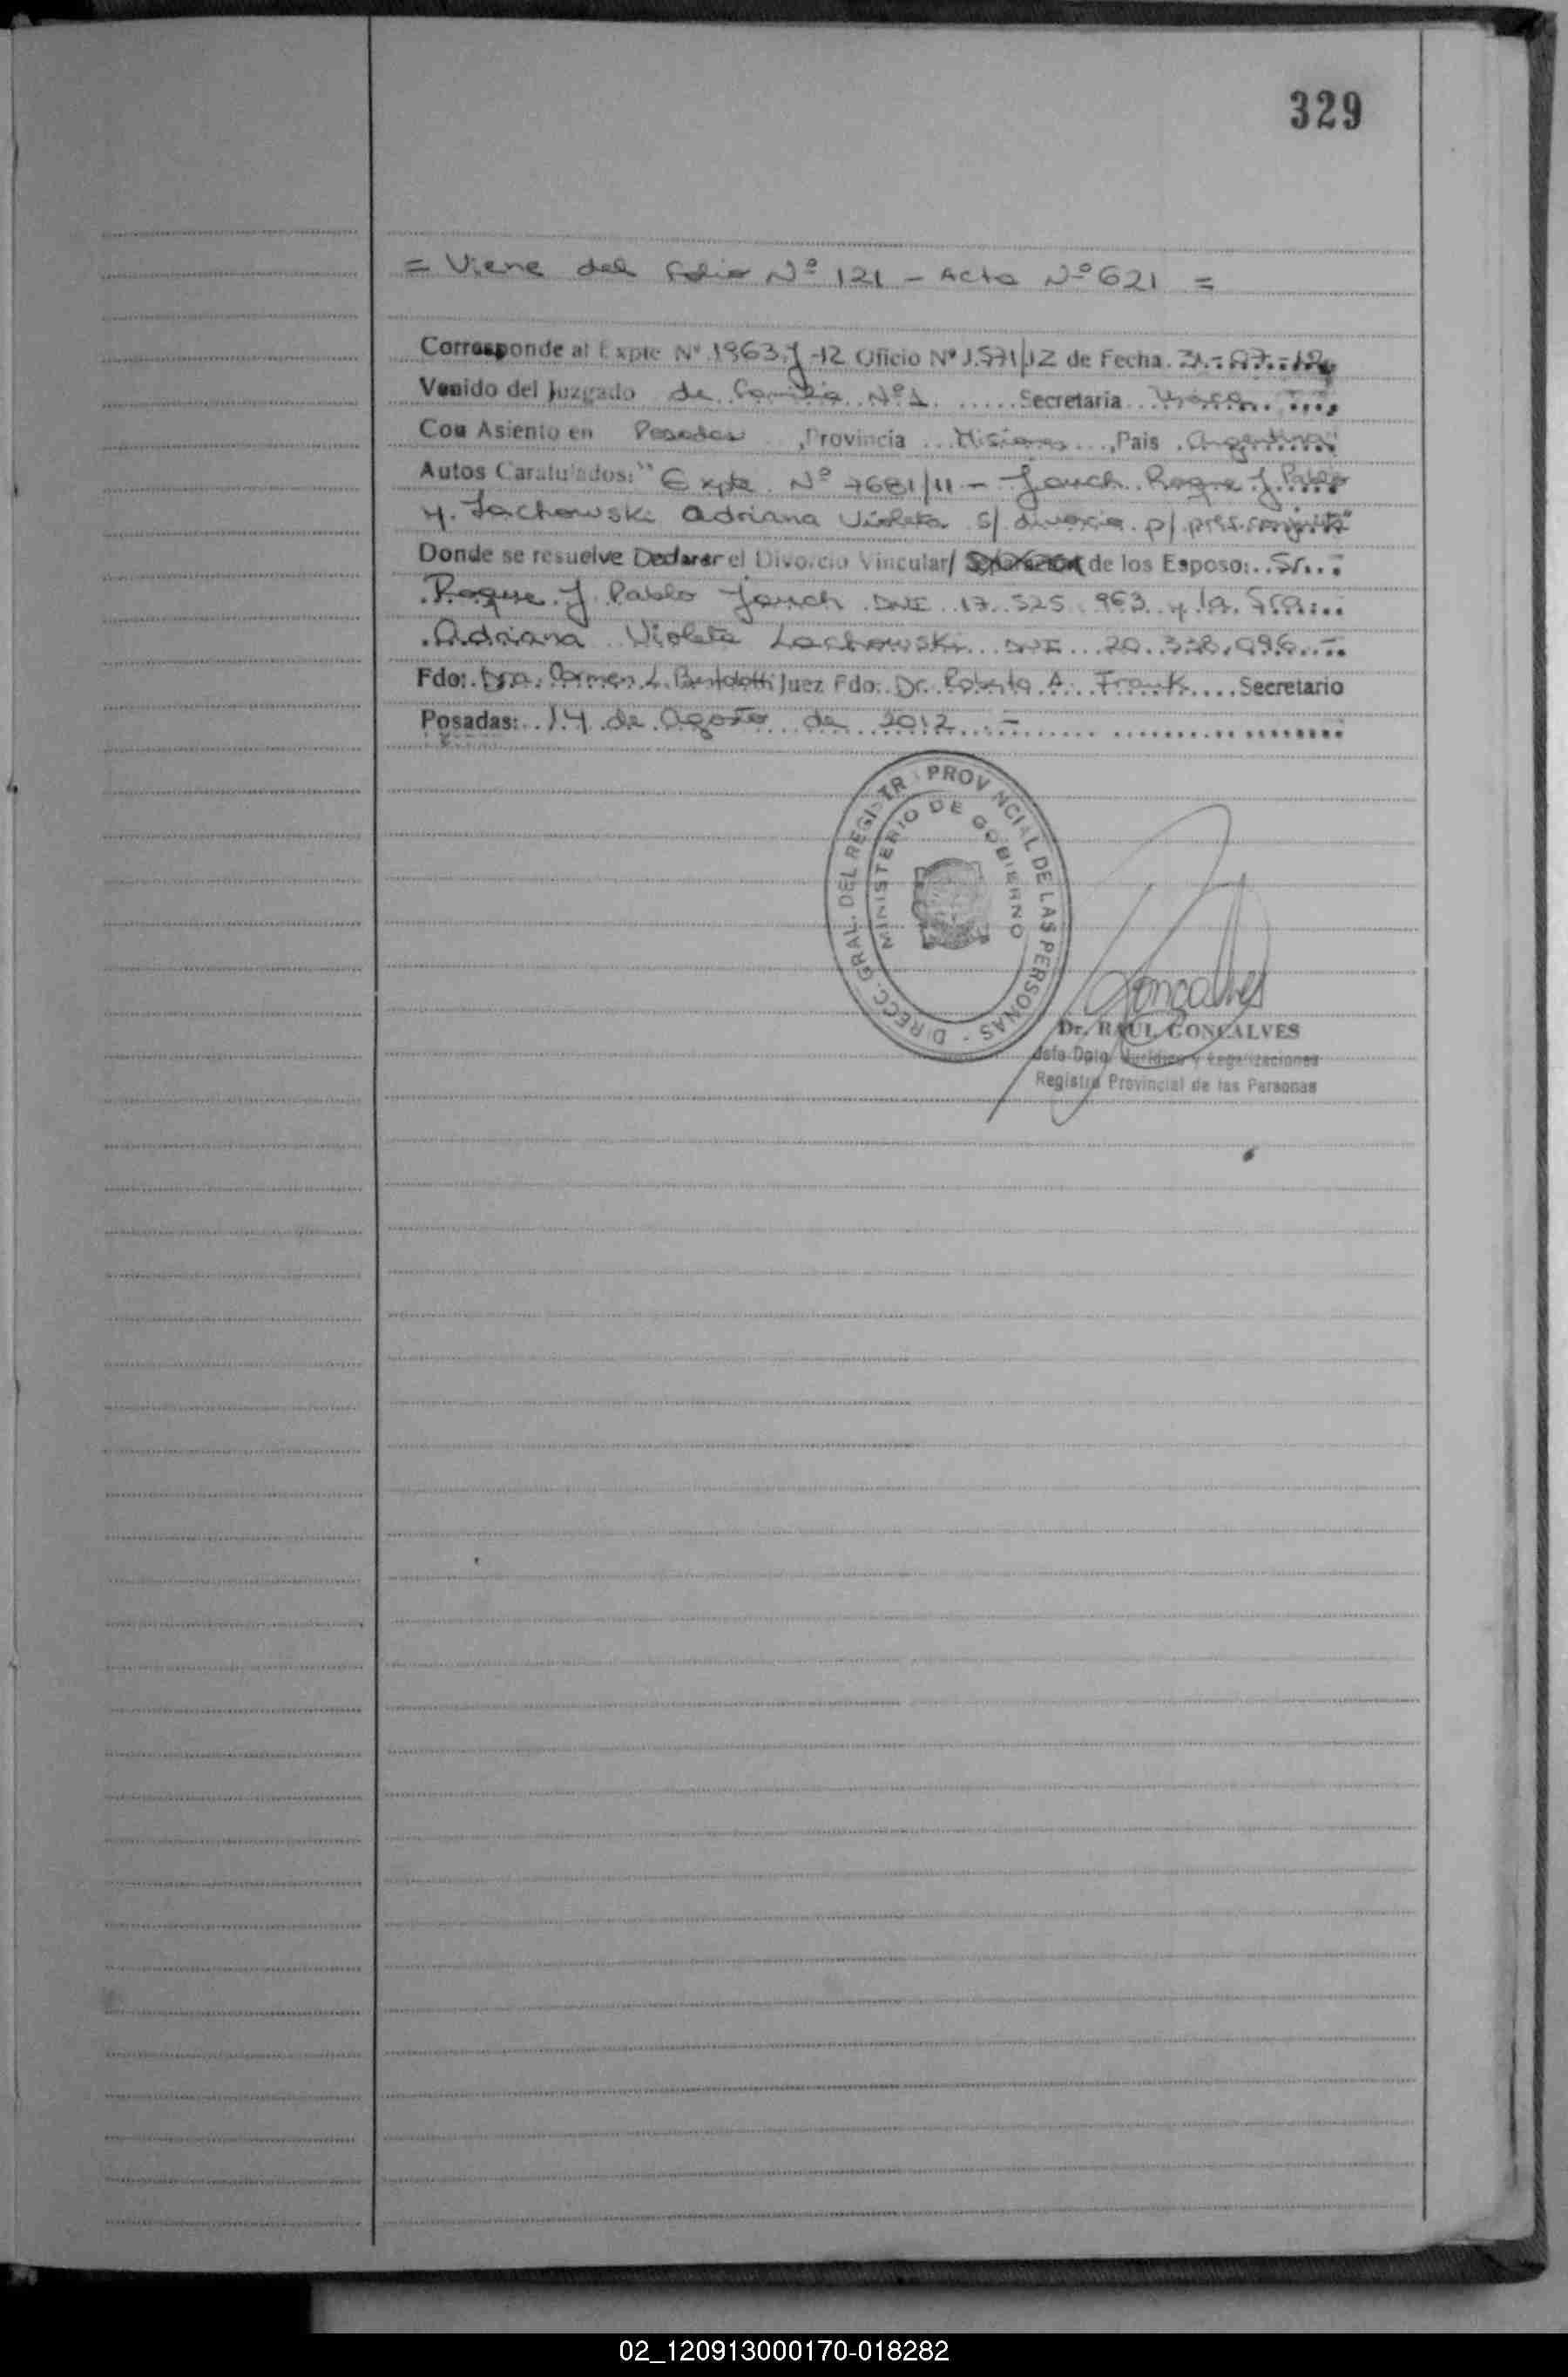 329
= Viene del folio Nº 121 - Acta Nº 621 =
Corresponde al Expte Nº 1963-J-12 Oficio Nº 1.571/12 de Fecha 31-07-12
Venido del Juzgado de Familia Nº 1 Secretaria
Con Asiento en Posadas, Provincia Misiones, Pais Argentina
Autos Caratulados: "Expte. Nº 7681/11 - Jauch Roque J. Pablo
y Lachowski Adriana Violeta s/ divorcio p/ pres. conjunta"
Donde se resuelve Declarar el Divorcio Vincular/ de los Esposo: Sr.
Roque J. Pablo Jauch DNI 17.525.963 y la Sra.
Adriana Violeta Lachowski DNI 20.338.096
Fdo: Dra. Carmen L. Bertolotti Juez Fdo: Dr. Roberto A. Frank Secretario
Posadas: 14 de Agosto de 2012 -
DIRECC. GRAL. DEL REGISTR PROVINCIAL DE LAS PERSONAS
MINISTERIO DE GOBIERNO
Goncalves
Dr. RAUL GONCALVES
Jefe Dpto. Jurídico y Legalizaciones
Registro Provincial de las Personas
02_120913000170-018282